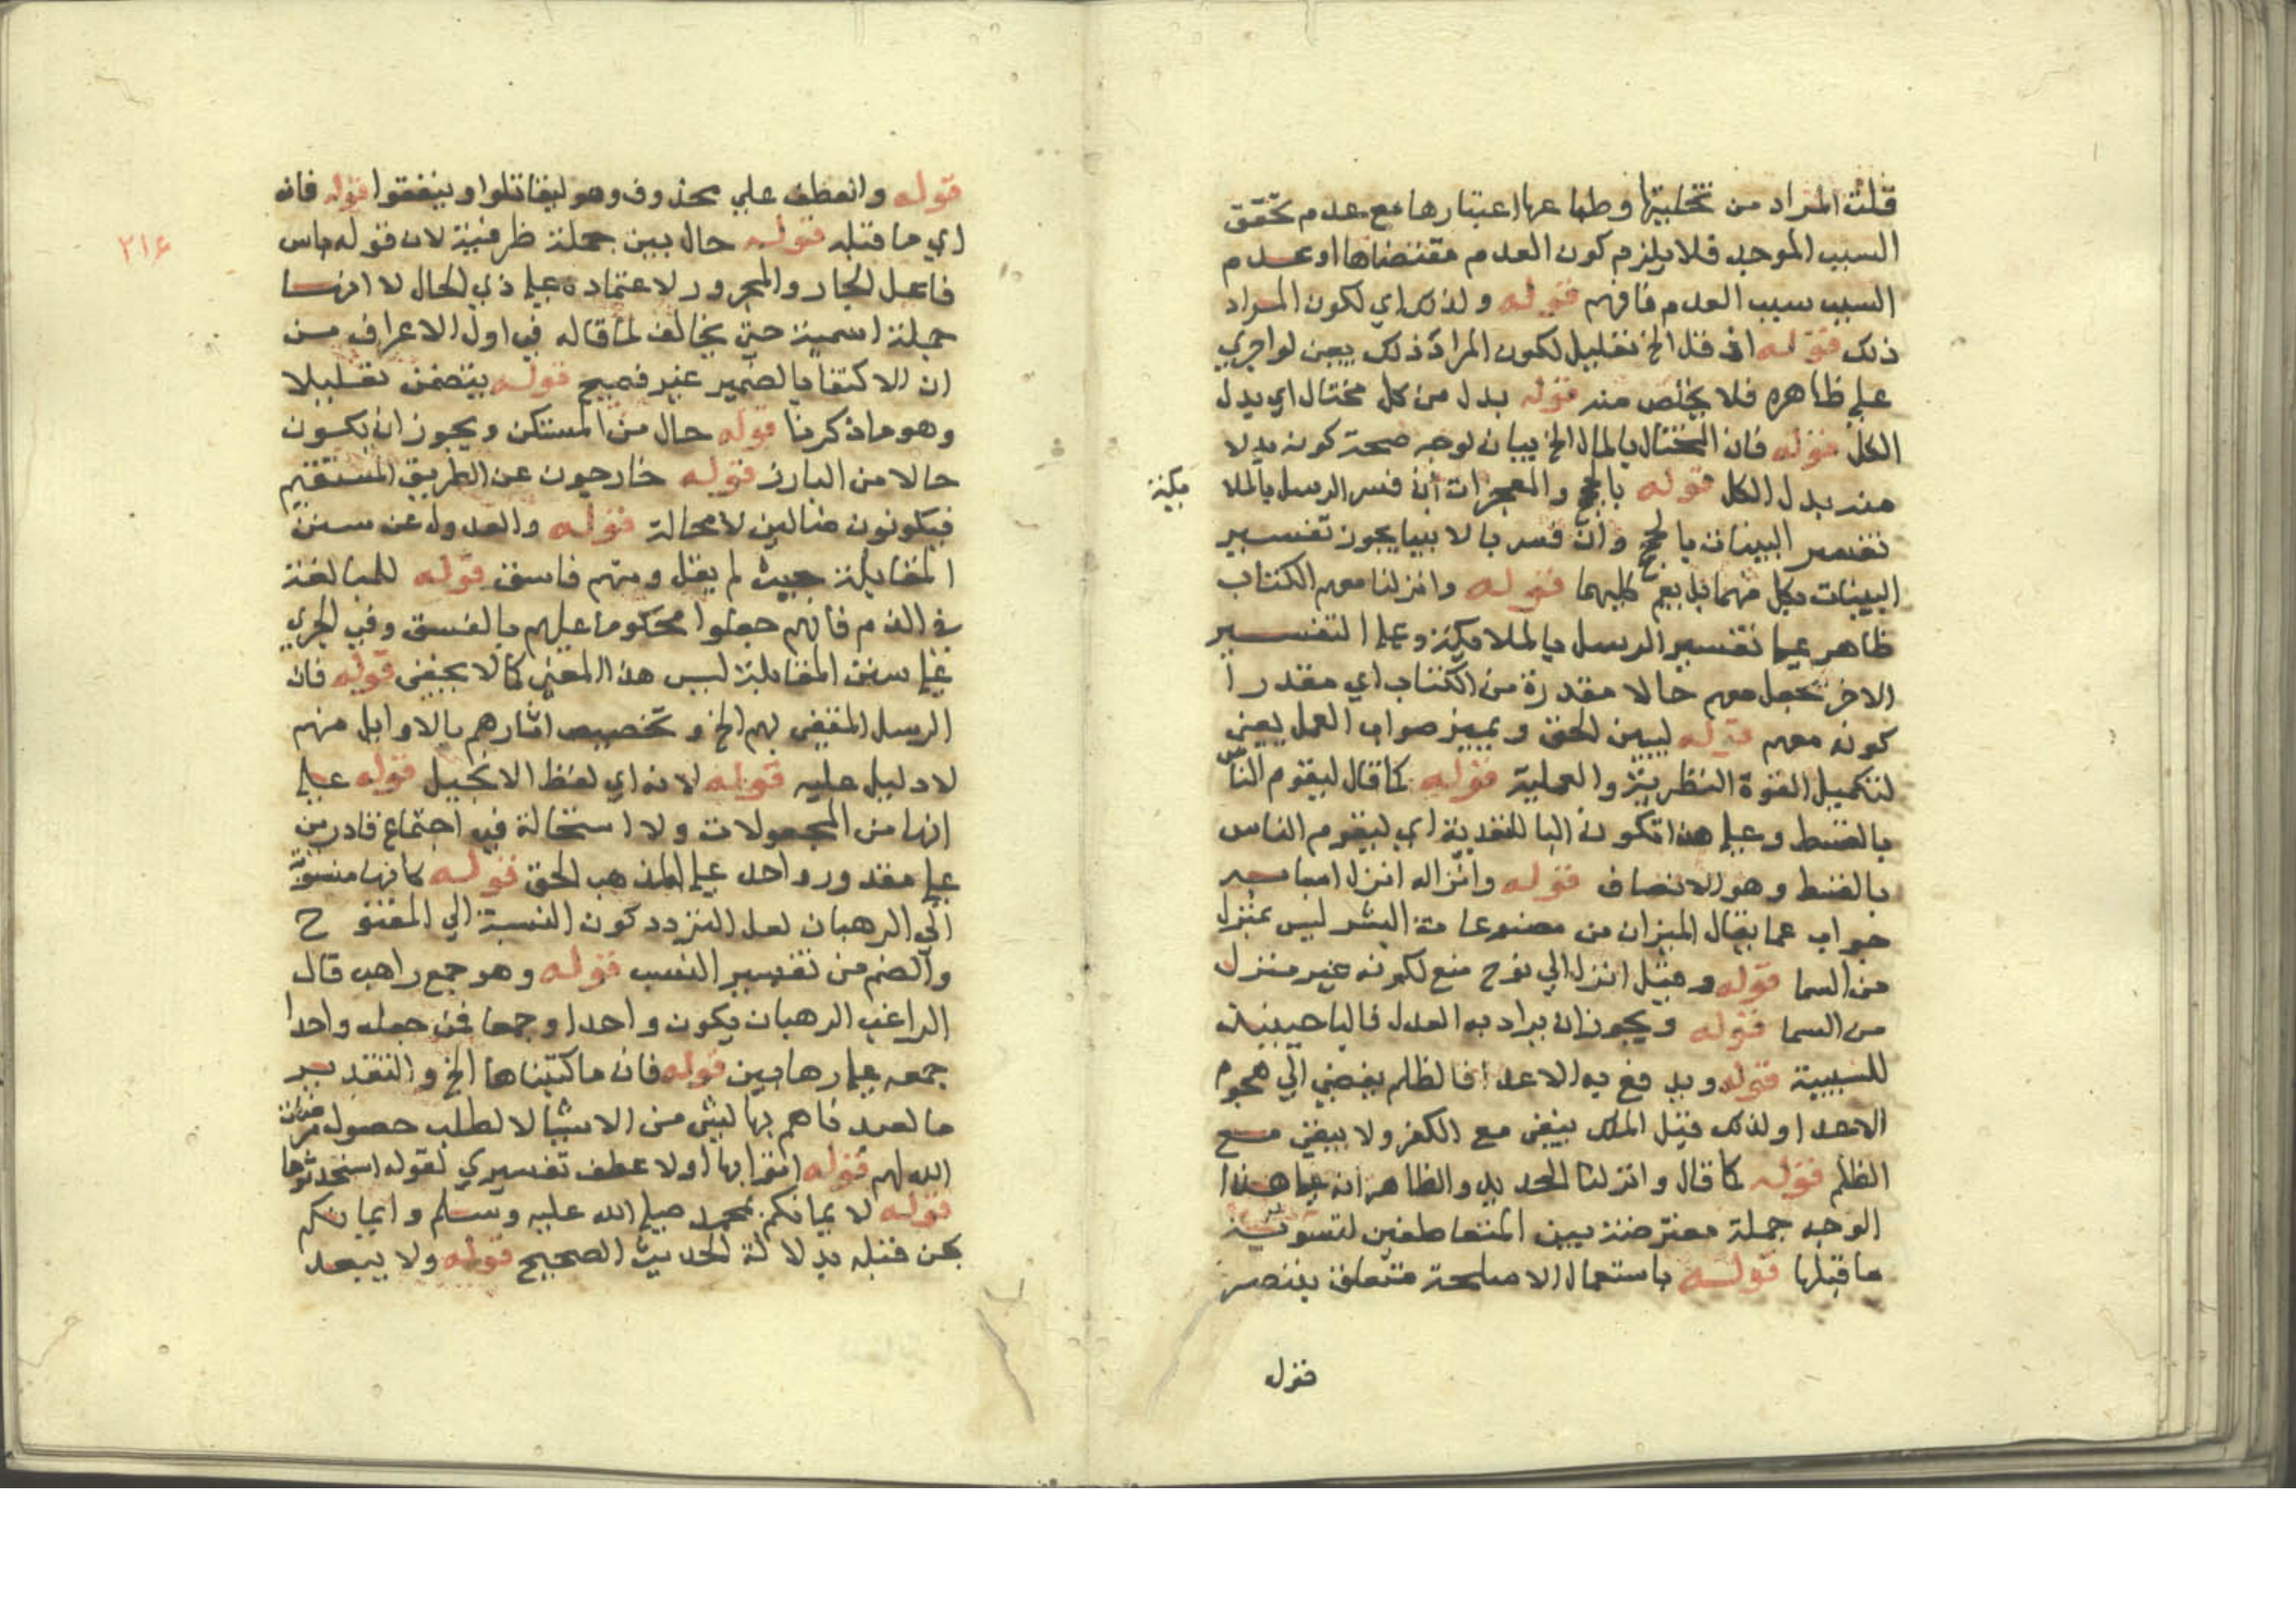 قلت المراد من تخليتها وطباعها اعتبارها مع عدم تحقق
السبب الموجد فلا يلزم كون العدم مقتضاها او عدم
السبب سبب العدم فافهم قوله ولذلك اي لكون المراد
ذلك قوله اذ قل الخ تعليل لكون المراد ذلك يعني لو اجري
علي ظاهره فلا يخلص منه قوله بدل من كل مختال اي بدل
الكل قوله فان المختال بالمال الخ بيان لوجه صحة كونه بدلا
منه بدل الكل قوله بالحجج والمعجزات ان فسر الرسل بالملا
ئكة
تفسير البينات بالحجج وان فسر بالانبيا يجوز تفسير
البينات بكل منهما بل بعم كليهما قوله وانزلنا معهم الكتاب
ظاهر علي تفسير الرسل بالملائكة وعلي التفسير
الاخر تجعل معهم حالا مقدرة من الكتاب اي مقدرا
كونه معهم قوله ليبين الحق ويميز صواب العمل يعني
لتكميل القوة النظرية والعملية قوله كما قال ليقوم الناس
بالقسط وعلي هذا تكون البا للتعدية اي ليقوم الناس
بالقسط وهو الانصاف قوله وانزاله انزل اسبابه
جواب عما يقال الميزان من مصنوعات البشر ليس بمنزل
من السما قوله وقيل انزل الي نوح منع لكونه غير منزل
من السما قوله ويجوز ان يراد به العدل فالبا حينئذ
للسببية قوله ويدفع به الاعدا فالظلم يفضي الي هجوم
الاعدا ولذلك قيل الملك يبقي مع الكفر ولا يبقي مع
الظلم قوله كما قال وانزلنا الحديد والظاهر انه علي هذا
الوجه جملة معترضة بين المتعاطفين لتسوية
ما قبلها قوله باستعمال الاسلحة متعلق بينصر
قوله
قوله والعطف علي محذوف وهو ليقاتلوا وينفقوا قوله فانه
اي ما قبله قوله حال بين جملة ظرفية لان قوله باس
فاعل الجار والمجرور لاعتماده علي ذي الحال لا انها
جملة اسمية حتي يخالف لما قاله في اول الاعراف من
ان الاكتفا بالضمير غير فصيح قوله يتضمن تعليلا
وهو ما ذكرنا قوله حال من المستكن ويجوز ان يكون
حالا من البارز قوله خارجون عن الطريق المستقيم
فيكونون ضالين لا محالة قوله والعدول عن سنن
المقابلة حيث لم يقل ومنهم فاسق قوله للمبالغة
في الذم فانهم جعلوا محكوما عليهم بالفسق وفي الجري
علي سنن المقابلة ليس هذا المعني كما لا يخفي قوله فان
الرسل المقفي بهم الخ وتخصيص اثارهم بالاوايل منهم
لا دليل عليه قوله لانه اي لفظ الانجيل قوله علي
انها من المجعولات ولا استحالة في اجتماع قادرين
علي مقدور واحد علي المذهب الحق قوله كانها منسوبة
الي الرهبان لعل التردد كون النسبة الي المفتوح
والضم من تفسير النسب قوله وهو جمع راهب قال
الراغب الرهبان يكون واحدا وجمعا فمن جعله واحدا
جمعه علي رهابين قوله فان ما كتبناها الخ والتقدير
ما لعبد فاهم بها لشي من الاشيا الا لطلب حصول مرضات
الله لهم قوله اتقرابها اولا عطف تفسيري لقوله استحدثوها
قوله لايمانكم بمحمد صلي الله عليه وسلم وايمانكم
بمن قبله بدلالة الحديث الصحيح قوله ولا يبعد
٢١٤